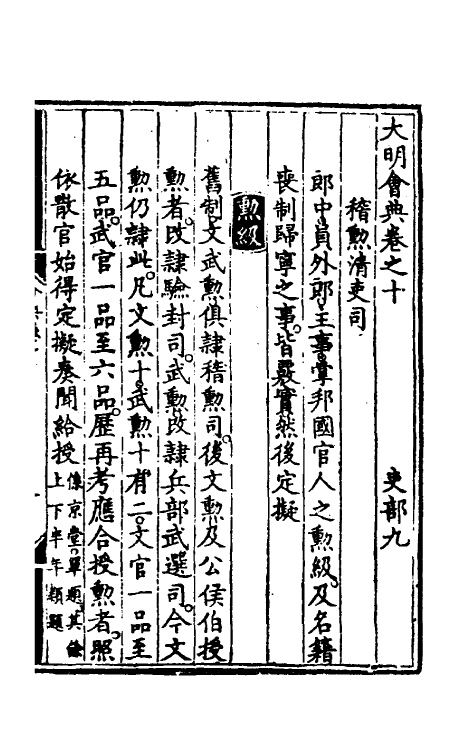 大明會典卷之十 吏部九
稽勲清吏司
郎中員外郎主事掌邦國官人之勲級及名籍
喪制歸寧之事皆覈實然後定擬
勲級
舊制文武勲俱隸稽勲司後文勲及公侯伯授
勲者改隸驗封司武勲改隸兵部武選司今文
勲仍隸此凡文勲十武勲十有二文官一品至
五品武官一品至六品歷再考應合授勲者照
依散官始得定擬奏聞給授係京堂單題其餘
上下半年類題